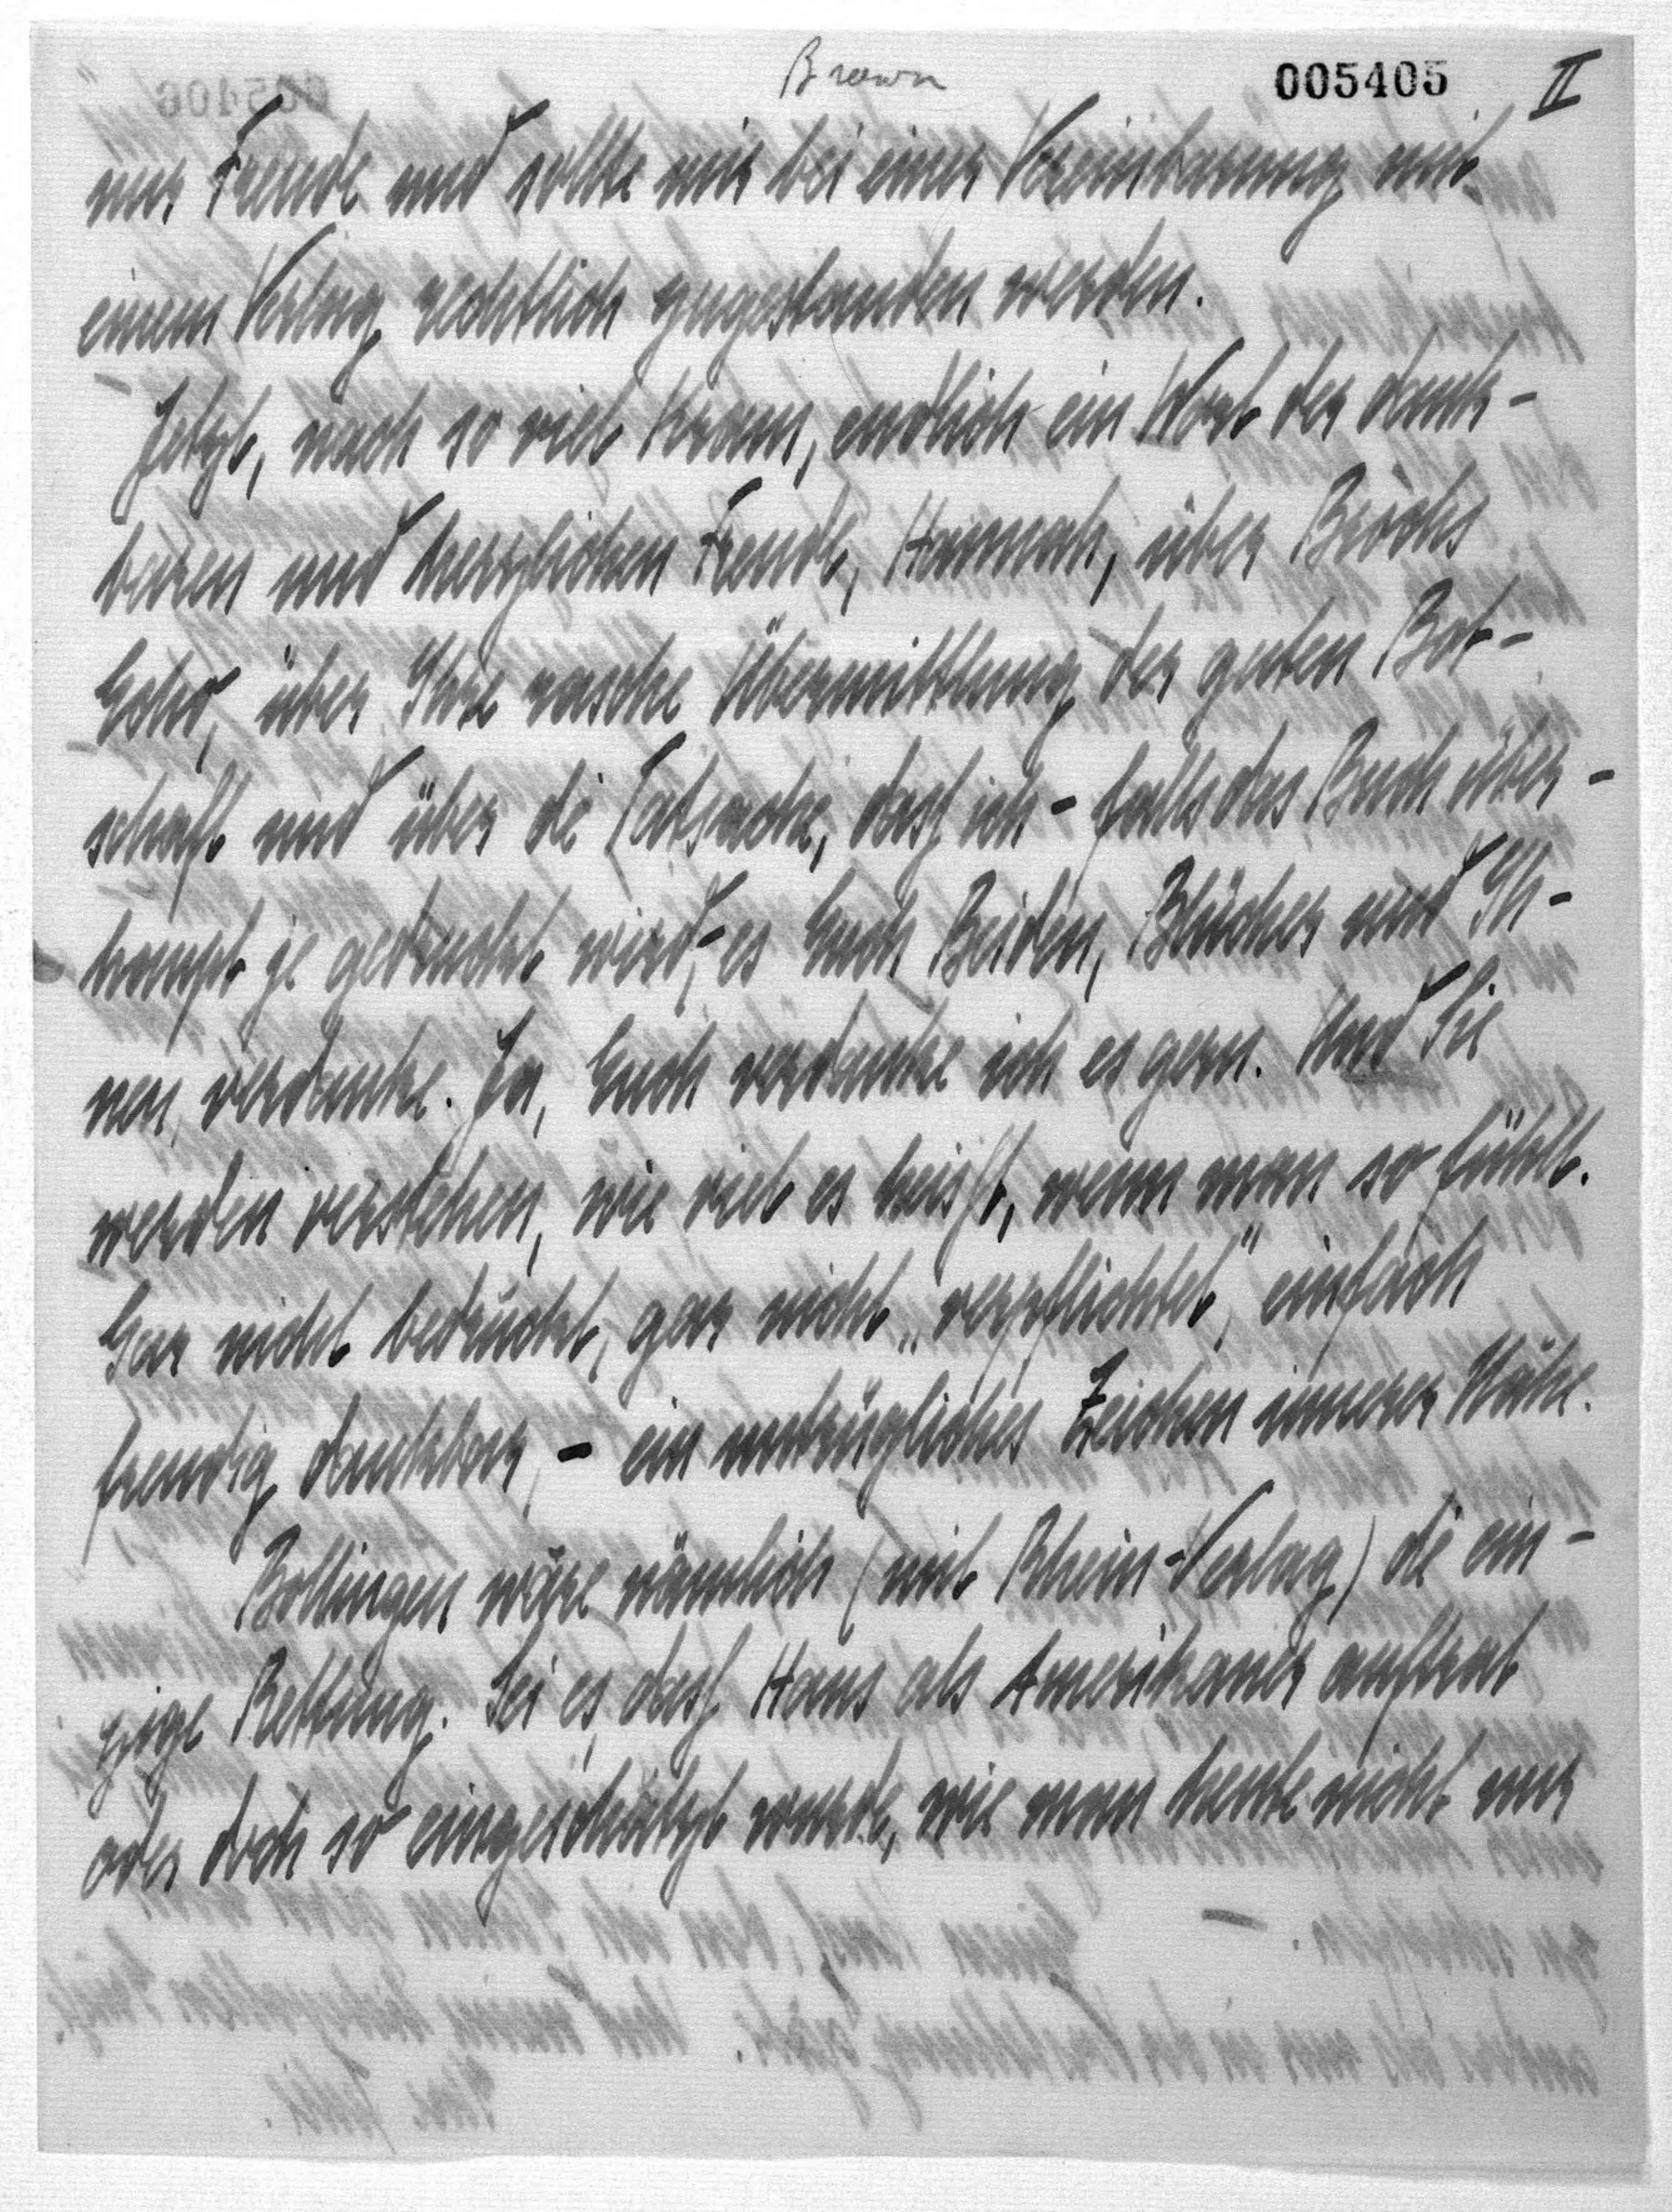 Brown
005405 II
nur Freude und sollte mir bei einer Vereinbarung mit
einem Verlag rechtlich zugestanden werden.
Jetzt, nach so viel Kram, endlich ein Wort der dank-
baren und herzlichen Freude, Hannah, über Brochs
Echo, über Ihre rasche Übermittlung der guten Bot-
schaft und über die Tatsache, dass ich - falls das Buch über-
haupt je gedruckt wird, - es Euch Beiden, Blücher und Ih-
nen, verdanke. Ja, Euch verdanke ich es gern. Und Sie
werden verstehen, wie viel es heisst, wenn man so fühlt.
Gar nicht bedrückt, gar nicht „verpflichtet", einfach
freudig dankbar, - ein untrügliches Zeichen innerer Nähe.
Bollingen wäre nämlich (mit Rhein-Verlag) die ein-
zige Rettung. Sei es, dass Hans als Amerikaner auftrat
oder doch so eingeschätzt wurde, wie man heute nicht nur